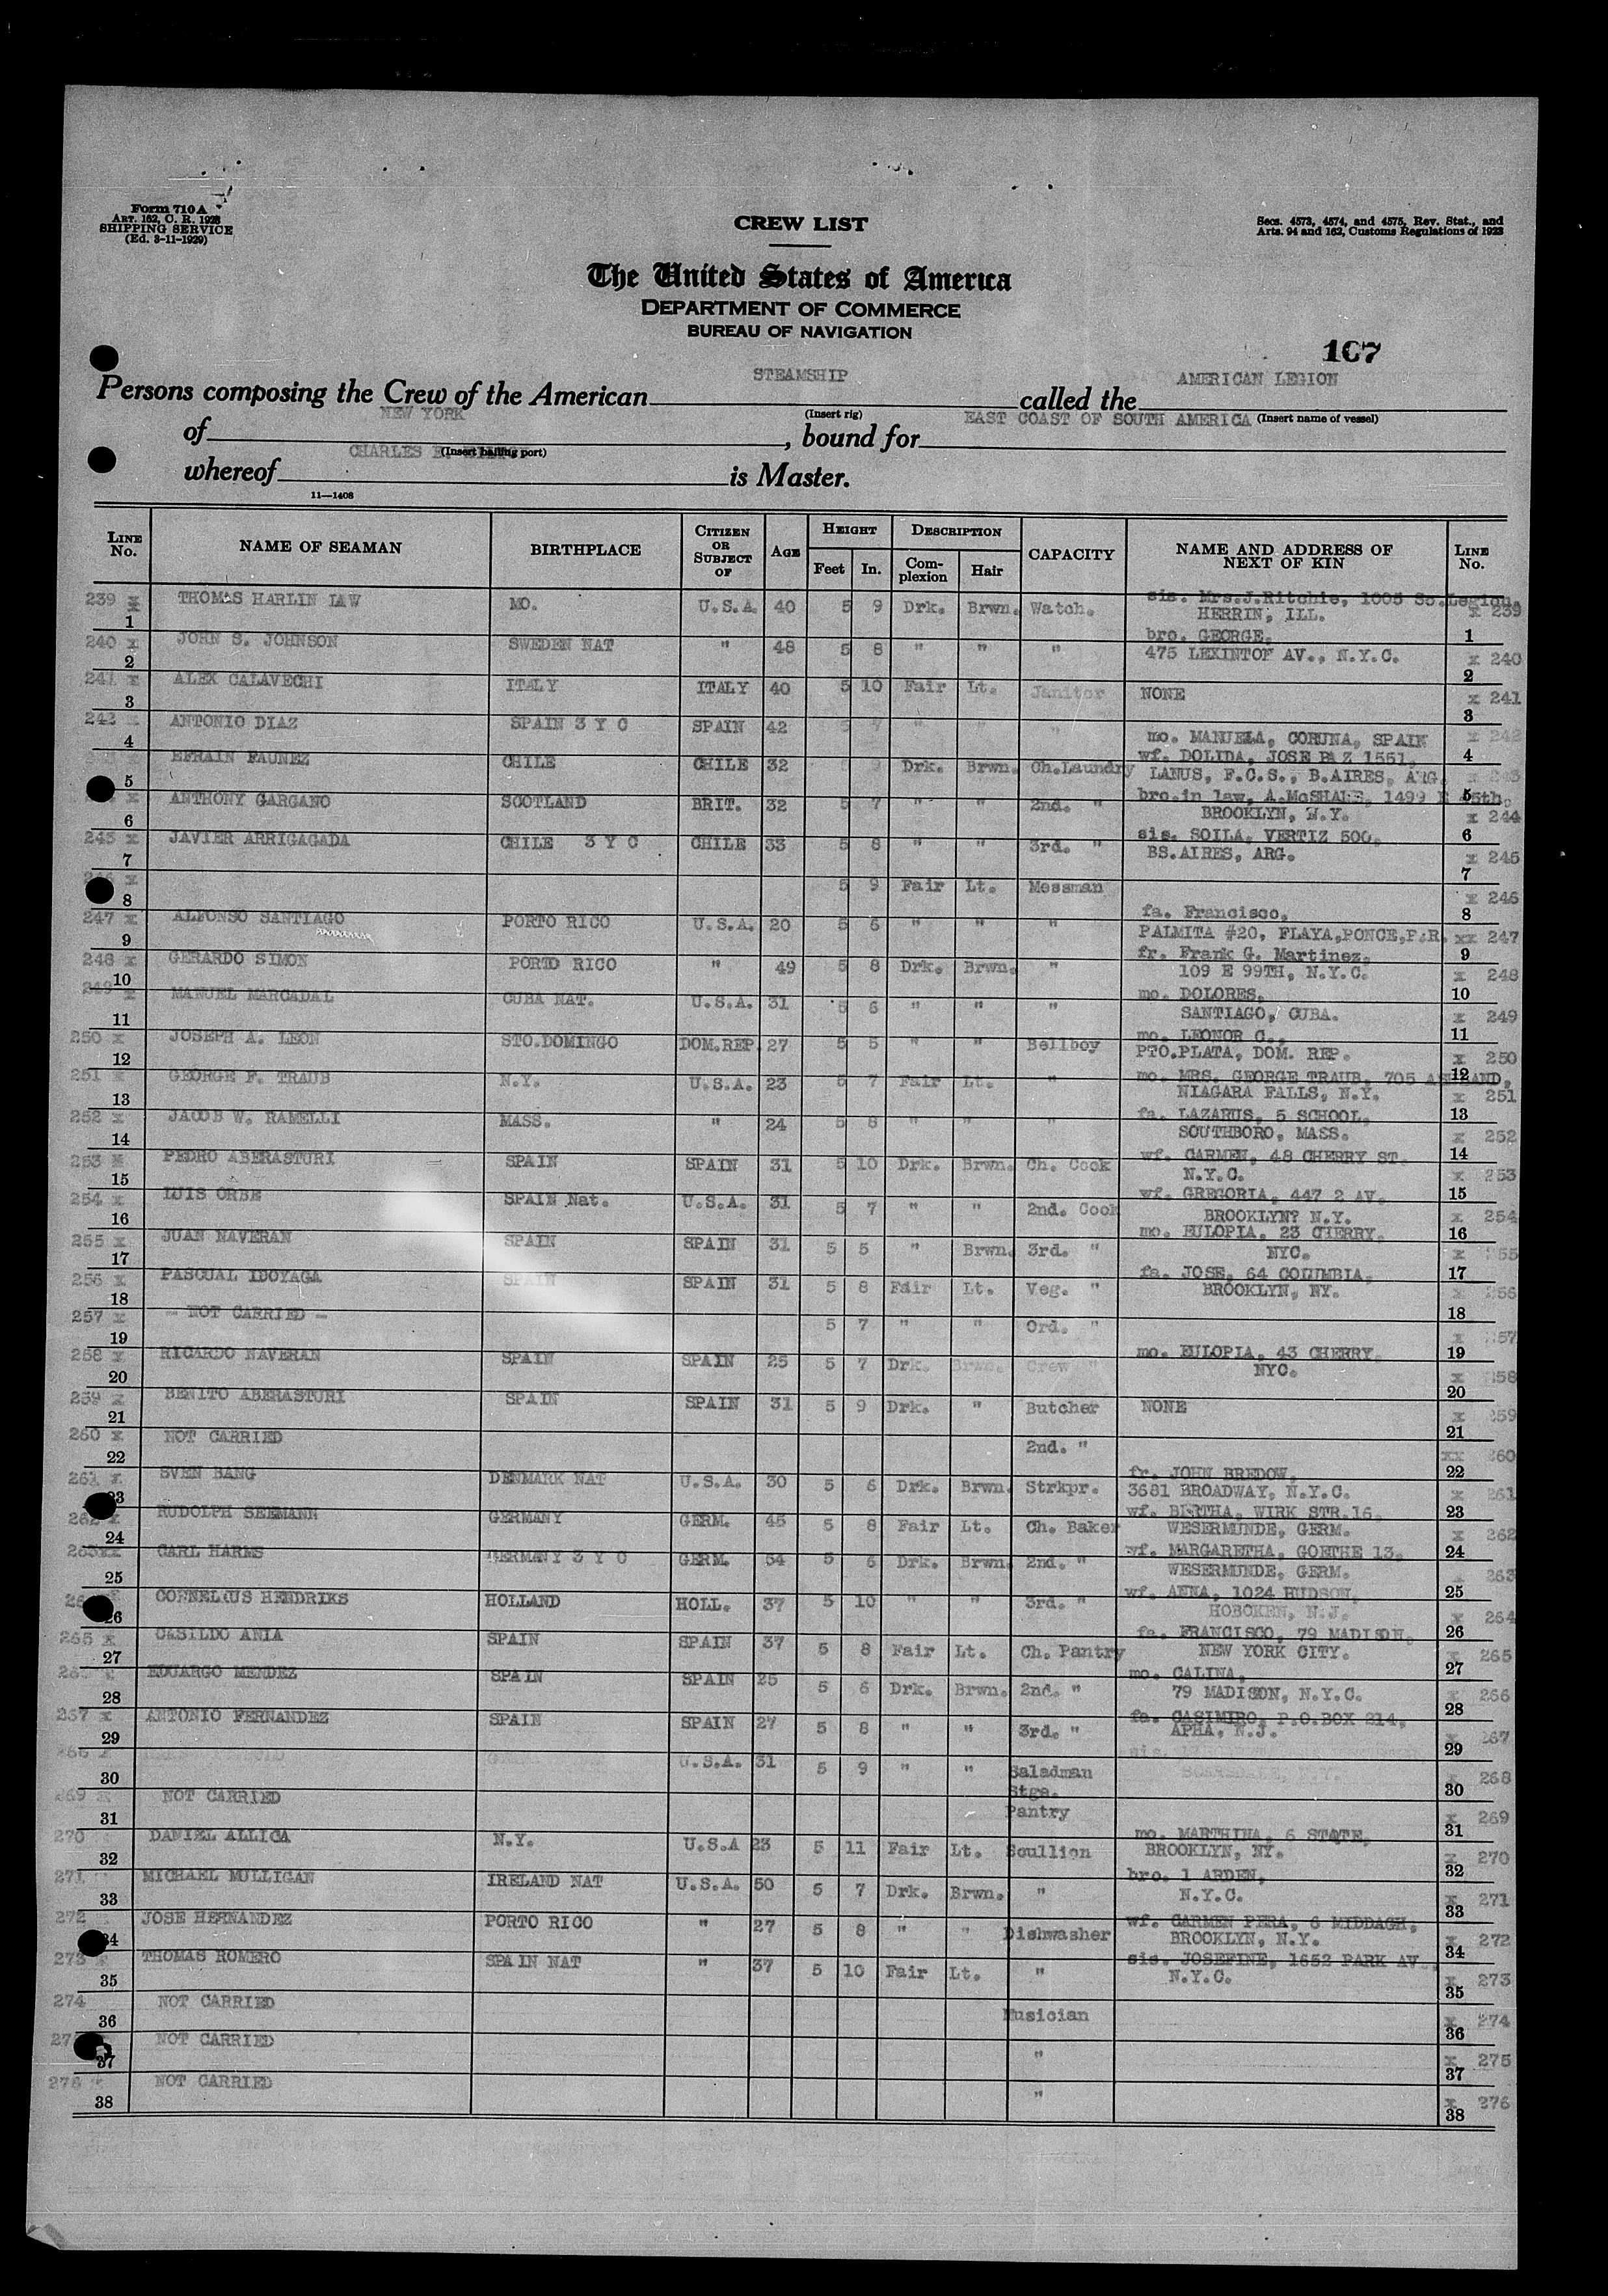 Form 710 A
ART. 162, C. R. 1923
SHIPPING SERVICE
(Ed. 3-11-1929)
CREW LIST
Secs. 4573, 4574, and 4575, Rev. Stat., and
Arts. 94 and 162, Customs Regulations of 1923
The United States of America
DEPARTMENT OF COMMERCE
BUREAU OF NAVIGATION
107
Persons composing the Crew of the American STEAMSHIP called the AMERICAN LEGION
(Insert rig) (Insert name of vessel)
of NEW YORK, bound for EAST COAST OF SOUTH AMERICA
(Insert hailing port)
whereof CHARLES is Master.
11—1408
LINE No. NAME OF SEAMAN BIRTHPLACE CITIZEN OR SUBJECT OF AGE HEIGHT Feet In. DESCRIPTION Complexion Hair CAPACITY NAME AND ADDRESS OF NEXT OF KIN LINE No.
239 x 1 THOMAS HARLIN LAW MO. U.S.A. 40 5 9 Drk. Brwn. Watch. sis. Mrs.J.Ritchie, 1005 So.Legion, HERRIN, ILL. x 239 1
240 x 2 JOHN S. JOHNSON SWEDEN NAT " 48 5 8 " " " bro. GEORGE, 475 LEXINTOF AV., N.Y.C. x 240 2
241 x 3 ALEX CALAVECHI ITALY ITALY 40 5 10 Fair Lt. Janitor NONE x 241 3
242 x 4 ANTONIO DIAZ SPAIN 3 Y C SPAIN 42 5 7 " " " mo. MANUELA, CORUNA, SPAIN x 242 4
5 EFRAIN FAUNEZ CHILE CHILE 32 9 Drk. Brwn. Ch.Laundry wf. DOLIDA, JOSE PAZ 1551, LANUS, F.C.S., B.AIRES, ARG. x 243 5
x 6 ANTHONY GARGANO SCOTLAND BRIT. 32 5 7 " " 2nd. " bro.in law, A.McSHANE, 1499 E 45th, BROOKLYN, N.Y. x 244 6
245 x 7 JAVIER ARRIGAGADA CHILE 3 Y C CHILE 33 5 8 " " 3rd. " sis. SOILA, VERTIZ 500, BS.AIRES, ARG. x 245 7
246 x 8 5 9 Fair Lt. Messman x 246 8
247 x 9 ALFONSO SANTIAGO PORTO RICO U.S.A. 20 5 6 " " " fa. Francisco, PALMITA #20, PLAYA,PONCE,P.R. xx 247 9
248 x 10 GERARDO SIMON PORTO RICO " 49 5 8 Drk. Brwn. " fr. Frank G. Martinez, 109 E 99TH, N.Y.C. x 248 10
249 x 11 MANUEL MARCADAL CUBA NAT. U.S.A. 31 5 6 " " " mo. DOLORES, SANTIAGO, CUBA. x 249 11
250 x 12 JOSEPH A. LEON STO.DOMINGO DOM.REP. 27 5 5 " " Bellboy mo. LEONOR C., PTO.PLATA, DOM. REP. x 250 12
251 x 13 GEORGE F. TRAUB N.Y. U.S.A. 23 5 7 Fair Lt. " mo. MRS. GEORGE TRAUB, 705 ASHLAND, NIAGARA FALLS, N.Y. x 251 13
252 x 14 JACOB W. RAMELLI MASS. " 24 5 8 " " " fa. LAZARUS, 5 SCHOOL, SOUTHBORO, MASS. x 252 14
253 x 15 PEDRO ABERASTURI SPAIN SPAIN 31 5 10 Drk. Brwn. Ch. Cook wf. CARMEN, 48 CHERRY ST. N.Y.C. x 253 15
254 x 16 LUIS ORBE SPAIN Nat. U.S.A. 31 5 7 " " 2nd. Cook wf. GREGORIA, 447 2 AV. BROOKLYN? N.Y. x 254 16
255 x 17 JUAN NAVERAN SPAIN SPAIN 31 5 5 " Brwn. 3rd. " mo. EULOPIA, 23 CHERRY. NYC. x 255 17
256 x 18 PASCUAL IDOYAGA SPAIN SPAIN 31 5 8 Fair Lt. Veg. " fa. JOSE, 64 COLUMBIA, BROOKLYN, NY. x 256 18
257 x 19 - NOT CARRIED - 5 7 " " Ord. " x 257 19
258 x 20 RICARDO NAVERAN SPAIN SPAIN 25 5 7 Drk. Brwn. Crew " mo. EULOPIA, 43 CHERRY. NYC. x 258 20
259 x 21 BENITO ABERASTURI SPAIN SPAIN 31 5 9 Drk. " Butcher NONE x 259 21
260 x 22 NOT CARRIED 2nd. " xx 260 22
261 x 23 SVEN BANG DENMARK NAT U.S.A. 30 5 6 Drk. Brwn. Strkpr. fr. JOHN BREDOW, 3681 BROADWAY, N.Y.C. x 261 23
262 x 24 RUDOLPH SEEMANN GERMANY GERM. 45 5 8 Fair Lt. Ch. Baker wf. BERTHA, WIRK STR.16. WESERMUNDE, GERM. x 262 24
263xx 25 CARL HARMS GERMANY 3 Y C GERM. 54 5 6 Drk. Brwn. 2nd. " wf. MARGARETHA, GOETHE 13, WESERMUNDE, GERM. 263 25
26 CORNELIUS HENDRIKS HOLLAND HOLL. 37 5 10 " " 3rd. " wf. ANNA, 1024 HUDSON, HOBOKEN, N.J. x 264 26
265 x 27 CASILDO ANIA SPAIN SPAIN 37 5 8 Fair Lt. Ch. Pantry fa. FRANCISCO, 79 MADISON. NEW YORK CITY. x 265 27
28 EDUARGO MENDEZ SPAIN SPAIN 25 5 6 Drk. Brwn. 2nd. " mo. CALINA, 79 MADISON, N.Y.C. 266 28
267 x 29 ANTONIO FERNANDEZ SPAIN SPAIN 27 5 8 " " 3rd. " fa. CASIMIRO, P.O.BOX 214, APHA, N.J. 267 29
30 U.S.A. 31 5 9 " " Saladman sis. 268 30
269 31 NOT CARRIED Stge. Pantry x 269 31
270 32 DANIEL ALLICA N.Y. U.S.A 23 5 11 Fair Lt. Scullion mo. MARTHINA, 6 STATE, BROOKLYN, NY. x 270 32
271 33 MICHAEL MULLIGAN IRELAND NAT U.S.A. 50 5 7 Drk. Brwn. " bro. 1 ARDEN, N.Y.C. x 271 33
272 34 JOSE HERNANDEZ PORTO RICO " 27 5 8 " " Dishwasher wf. CARMEN PERA, 6 MIDDAGH, BROOKLYN, N.Y. x 272 34
273 x 35 THOMAS ROMERO SPAIN NAT " 37 5 10 Fair Lt. " sis. JOSEFINE, 1652 PARK AV., N.Y.C. x 273 35
274 36 NOT CARRIED Musician x 274 36
37 NOT CARRIED " x 275 37
276 38 NOT CARRIED " x 276 38